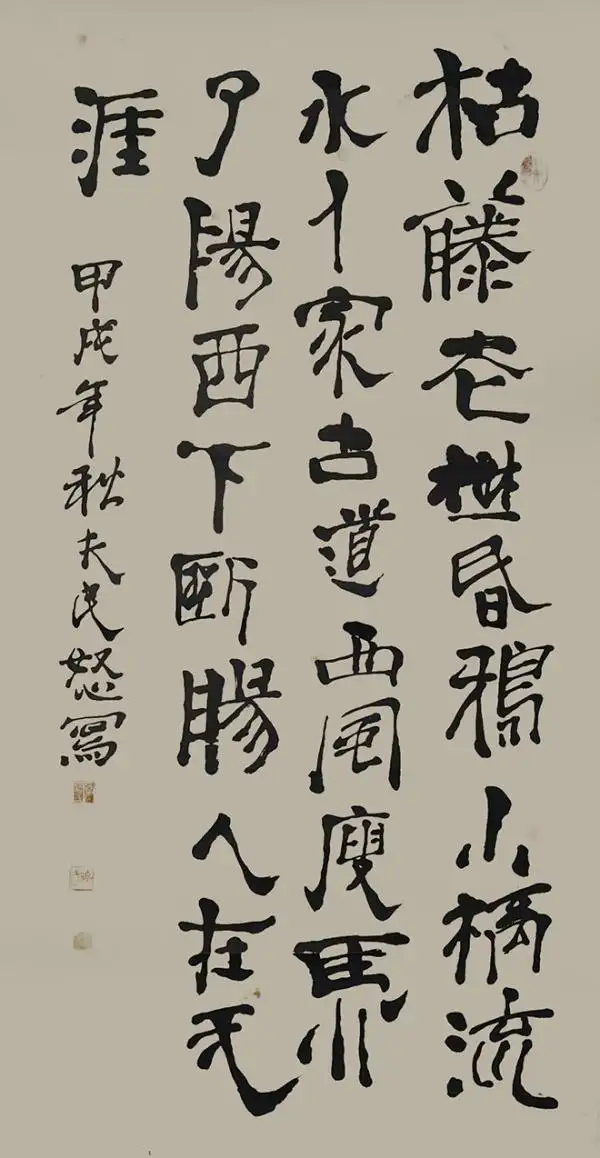 枯藤老樹昏鴉小橋流
水人家古道西風瘦馬
夕陽西下斷腸人在天
涯
甲戌年秋夫民怒寫